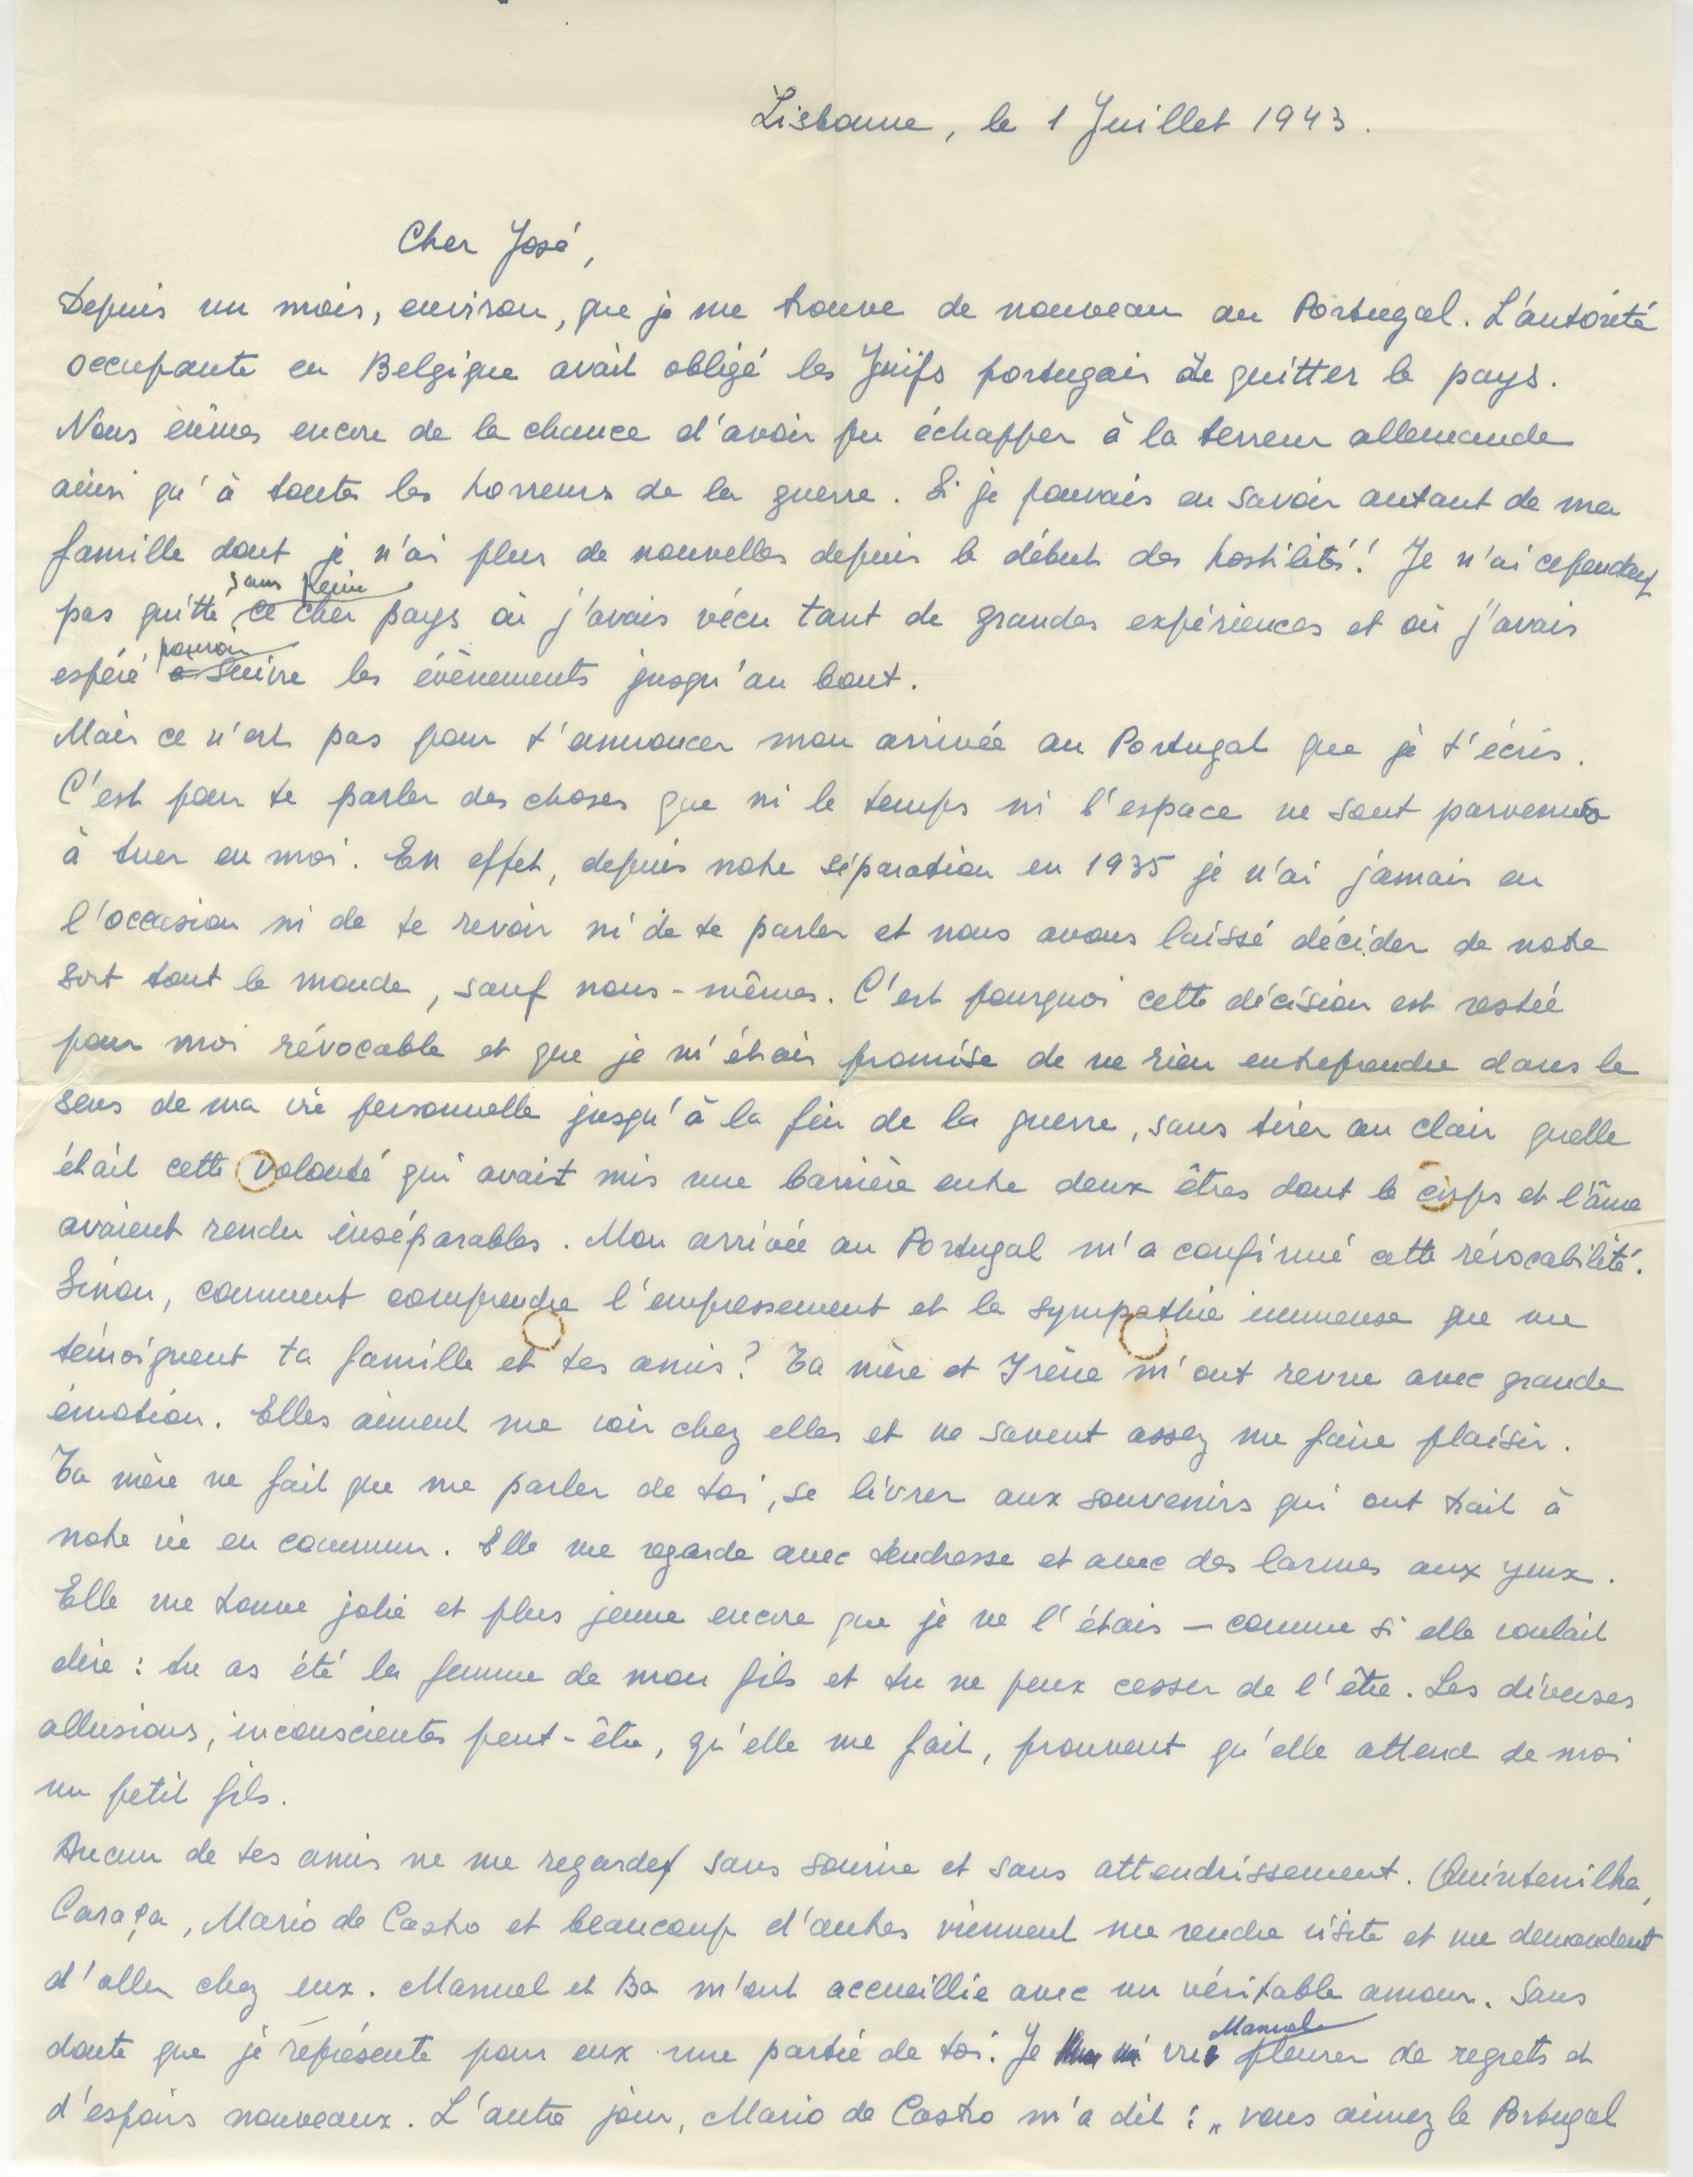 Lisbonne, le 1 Juillet 1943.
Cher José,
Depuis un mois, environ, que je me trouve de nouveau au Portugal. L'autorité
occupante en Belgique avait obligé les Juifs portugais de quitter le pays.
Nous eûmes encore de la chance d'avoir pu échapper à la terreur allemande
ainsi qu'à toutes les horreurs de la guerre. Si je pouvais en savoir autant de ma
famille dont je n'ai plus de nouvelles depuis le début des hostilités! Je n'ai cependant
pas quitté sans peine ce cher pays où j'avais vécu tant de grandes expériences et où j'avais
espéré pouvoir suivre les évènements jusqu'au bout.
Mais ce n'est pas pour t'annoncer mon arrivée au Portugal que je t'écris.
C'est pour te parler des choses que ni le temps ni l'espace ne sont parvenus
à tuer en moi. En effet, depuis notre séparation en 1935 je n'ai jamais eu
l'occasion ni de te revoir ni de te parler et nous avons laissé décider de notre
sort tout le monde, sauf nous-mêmes. C'est pourquoi cette décision est restée
pour moi révocable et que je m'étais promise de ne rien entreprendre dans le
sens de ma vie personnelle jusqu'à la fin de la guerre, sans tirer au clair quelle
était cette volonté qui avait mis une barrière entre deux êtres dont le corps et l'âme
avaient rendu inséparables. Mon arrivée au Portugal m'a confirmé cette révocabilité.
Sinon, comment comprendre l'empressement et la sympathie immense que me
témoignent ta famille et tes amis? Ta mère et Irène m'ont revue avec grande
émotion. Elles aiment me voir chez elles et ne savent assez me faire plaisir.
Ta mère ne fait que me parler de toi, se livrer aux souvenirs qui ont trait à
notre vie en commun. Elle me regarde avec tendresse et avec des larmes aux yeux.
Elle me donne jolie et plus jeune encore que je ne l'étais – comme si elle voulait
dire : tu as été la femme de mon fils et tu ne peux cesser de l'être. Les diverses
allusions, inconscientes peut-être, qu'elle me fait, prouvent qu'elle attend de moi
un petit fils.
Aucun de tes amis ne me regarde sans sourire et sans attendrissement. Quintanilha,
Caraça, Mario de Castro et beaucoup d'autres viennent me rendre visite et me demandent
d'aller chez eux. Manuel et Ba m'ont accueillie avec un véritable amour. Sans
doute que je représente pour eux une partie de toi. Je vis Manuel pleurer de regrets et
d'espoirs nouveaux. L'autre jour, Mario de Castro m'a dit : „ vous aimez le Portugal